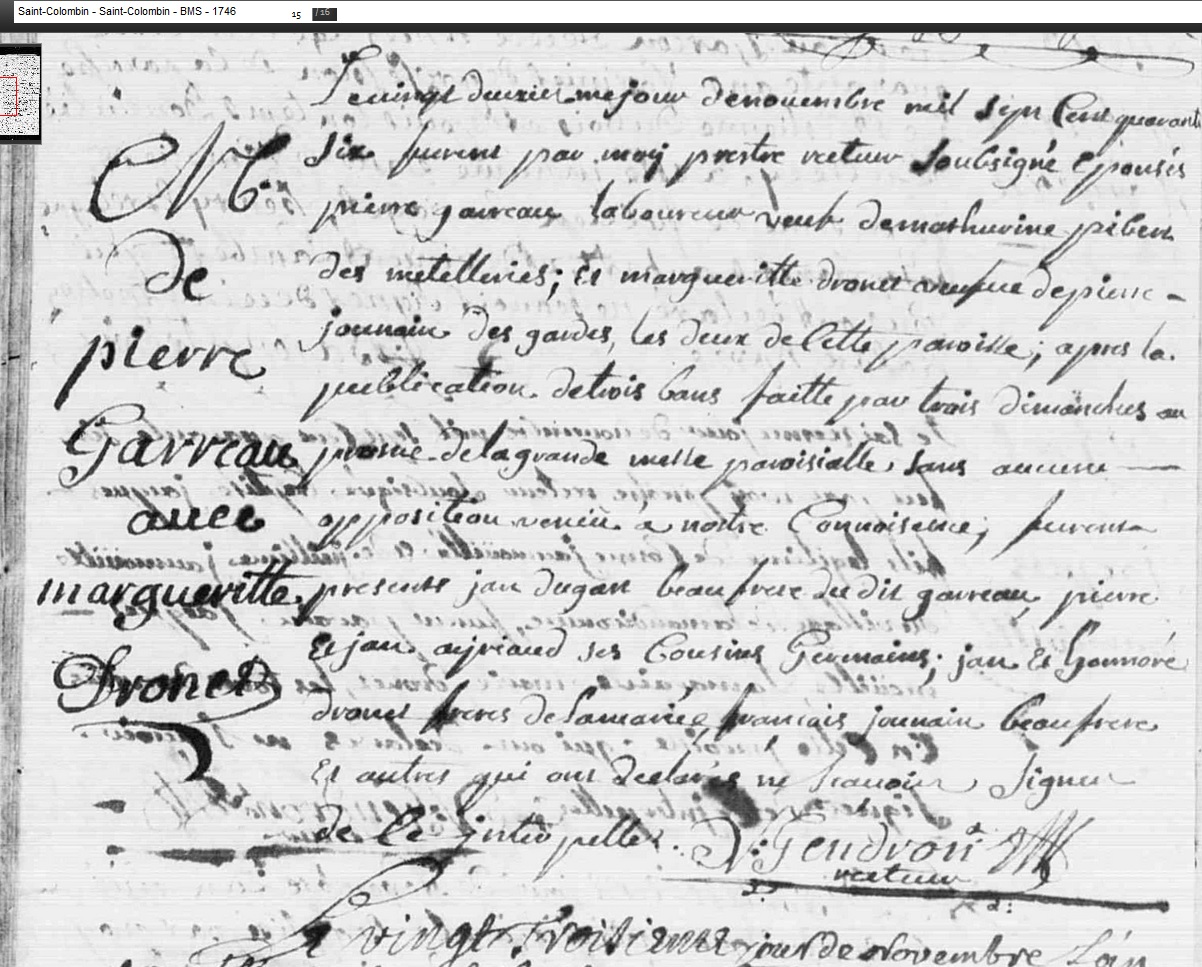 Saint-Colombin - Saint-Colombin - BMS - 1746
15 / 16
Le vingt deuxiesme jour de nouembre mil sept Cent quarante
six furent par moy prestre recteur soubsigné Epousés
pierre garreau laboureur veuf de mathurine pibert
des metelleries; Et margueritte dronet veufue de pierre -
jounain des gardes, les deux de Cette paroisse; apres la
publication de trois bans faitte par trois dimanches au
prosne de la grande messe paroisialle, sans aucune
opposition venüe à nostre Connoisence; furent
presents jan dugast beaufrere du dit garreau, pierre
Et jan ses Cousins Germains; jan Et honnoré
dronet freres de la mariée, francois jounain beaufrere
Et autres qui ont declarés ne scauoir signer
de Ce interpellé. Gendron
recteur
M
de
pierre
Garreau
auec
margueritte
Dronet
Le vingt Troisieme jour de Novembre L'an